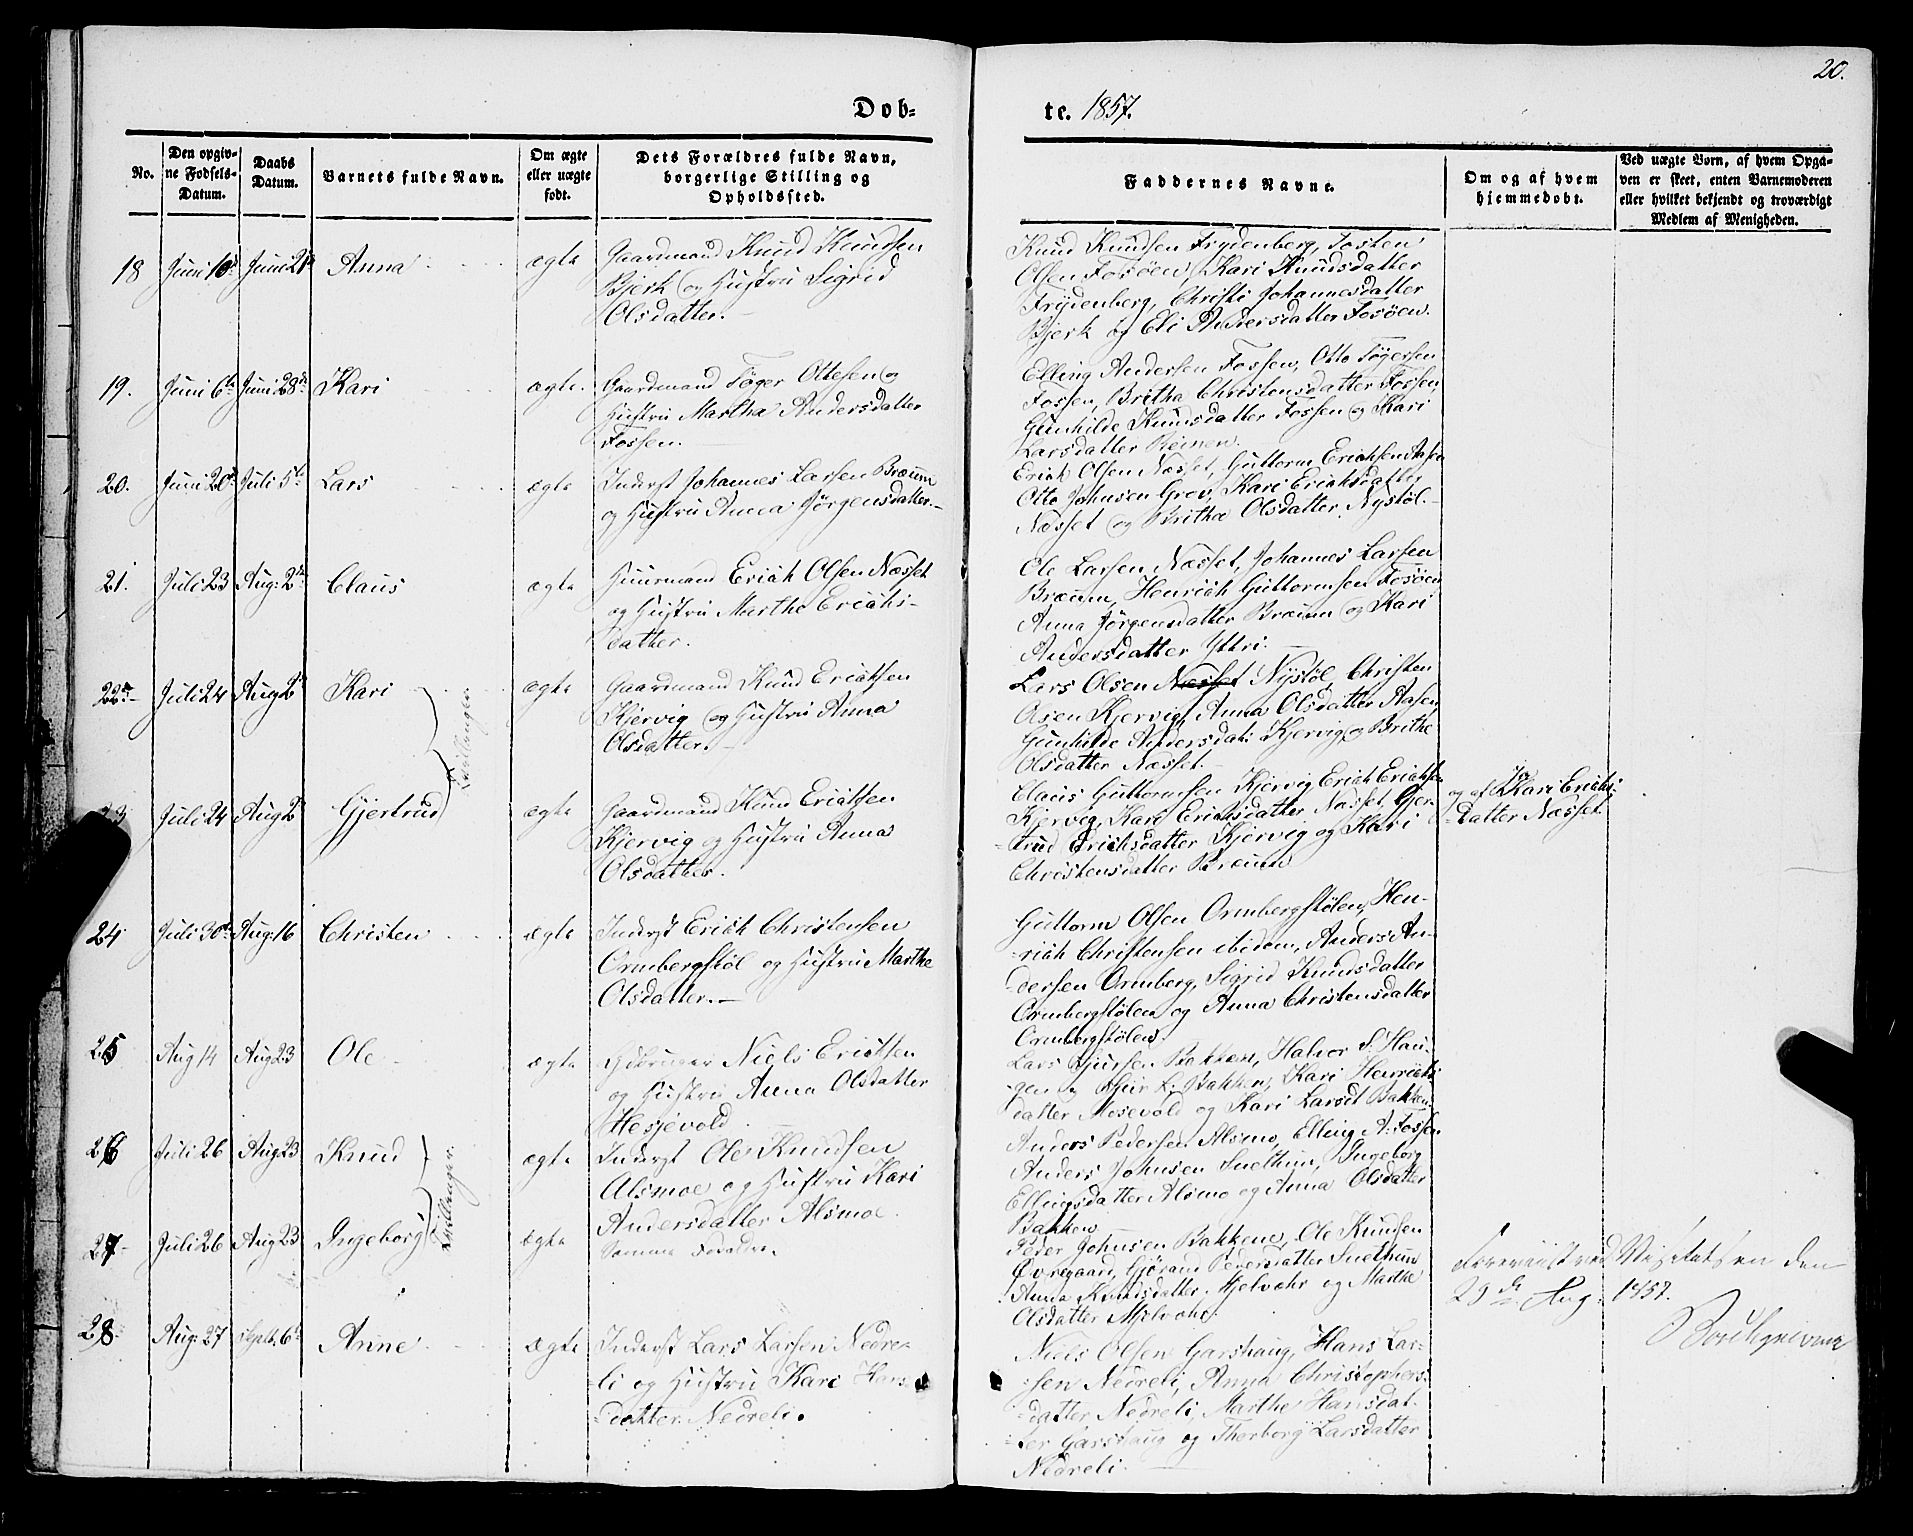 20.
Døb-
te. 1857.
No.
Den opgiv-
ne Fødsels-
Datum.
Daabs
Datum.
Barnets fulde Navn.
Om ægte
eller uægte
født.
Dets Forældres fulde Navn,
borgerlige Stilling og
Opholdssted.
Faddernes Navne.
Om og af hvem
hjemmedøbt.
Ved uægte Børn, af hvem Opga-
ven er skeet, enten Barnemoderen
eller hvilket bekjendt og troværdigt
Medlem af Menigheden.
18 Juni Juni 21 Anna ægte
Gaardmand Knud Knudsen
Bjerk og Hustru Sigrid
Olsdatter.
Knud Knudsen Frydenberg, Tosten
Olsen Fosøen, Kari Knudsdatter
Frydenberg, Christi Johannesdatter
Bjerk og Eli Andersdatter Fosøen.
19. Juni 6te Juni 28de Kari ægte.
Gaardmand Tøger Ottesen og
Hustru Martha Andersdatter
Fossen.
Elling Andersen Fossen, Otto Tøgersen
Fossen, Britha Christensdatter Fossen,
Gunhilde Knudsdatter Fossen og Kari
Larsdatter Reinen.
20. Juni 20de Juli 5te Lars ægte
Inderst Johannes Larsen Bræum
og Hustru Anna Jørgensdatter.
Erich Olsen Næsset, Guttorm Erichsen Aasen
Otto Johnsen Grov, Kari Erichsdatter
Næsset og Britha Olsdatter Nystøl.
21. Juli 23 Aug: 2den Claus ægte
Huusmand Erich Olsen Næsset
og Hustru Marthe Erichs-
datter.
Ole Larsen Næsset, Johannes Larsen
Bræum, Henrich Guttormsen Fosøen
Anna Jørgensdatter Bræum og Kari
Andersdatter Yttri.
22 Juli 24 Aug 2 Kari ægte
Tvillinger
Gaardmand Knud Erichsen
Kjervig og Hustru Anna
Olsdatter.
Lars Olsen Næsset Nystøl, Christen
Olsen Kjervig, Anna Olsdatter Aasen,
Gunhilde Andersdat: Kjervig og Brithe
Olsdatter Næsset.
23 Juli 24 Aug 2 Gjertrud ægte
Gaardmand Knud Erichsen
Kjervig og Hustru Anna
Olsdatter.
Claus Guttormsen Kjervig, Erich Erichsen
Kjervig, Kari Erichsdatter Næsset, Gjer-
trud Erichsdatter Kjervig og Kari
Christensdatter Bræum
Ja
og af Kari Erichs-
datter Næsset
24 Juli 30te Aug: 16 Christen ægte
Inderst Erich Christensen
Ormbergstøl og Hustru Marthe
Olsdatter.
Guttorm Olsen Ormbergstølen, Hen-
rich Christensen ibidem, Anders An-
dersen Ormberg, Sigrid Knudsdatter
Ormbergstølen og Anna Christensdatter
Ormbergstølen.
25 Aug 14 Aug 23 Ole ægte
Niels Erichsen
og Hustru Anna Olsdatter
Hesjevold
Lars Bakken, Halvor S. Hau-
gen og L. Bakken, Kari Henrichs-
datter Mosevold og Kari Larsdt Bakken
26 Juli 26 Aug 23 Knud ægte
Tvillinger
Inderst Ole Knudsen
Alsmoe og Hustru Kari
Andersdatter Alsmoe.
Anders Pedersen Alsmo, Elling A. Fossen
Anders Johnsen Snethun, Ingeborg
Ellingsdatter Alsmo og Anna Olsdatter
Bakken
27 Juli 26 Aug 23 Ingeborg ægte
Samme Forældre.
Peder Johnsen Bakkene, Ole Knudsen
Øvregaard, Gjøran Pedersdatter Snethun
Anna Knudsdatter Mjelvohr og Marthe
Olsdatter Mjelvohr.
Foreviist ved Visitatsen den
29de Aug. 1857.
28 Aug: 27 Septb. 6te Anne ægte
Inderst Lars Larsen Nedre-
li og Hustru Kari Hans-
datter Nedreli.
Niels Olsen Garshaug, Hans Lar-
sen Nedreli, Anna Christophers-
datter Nedreli, Marthe Hansdat-
ter Garshaug og Thorborg Larsdatter
Nedreli.